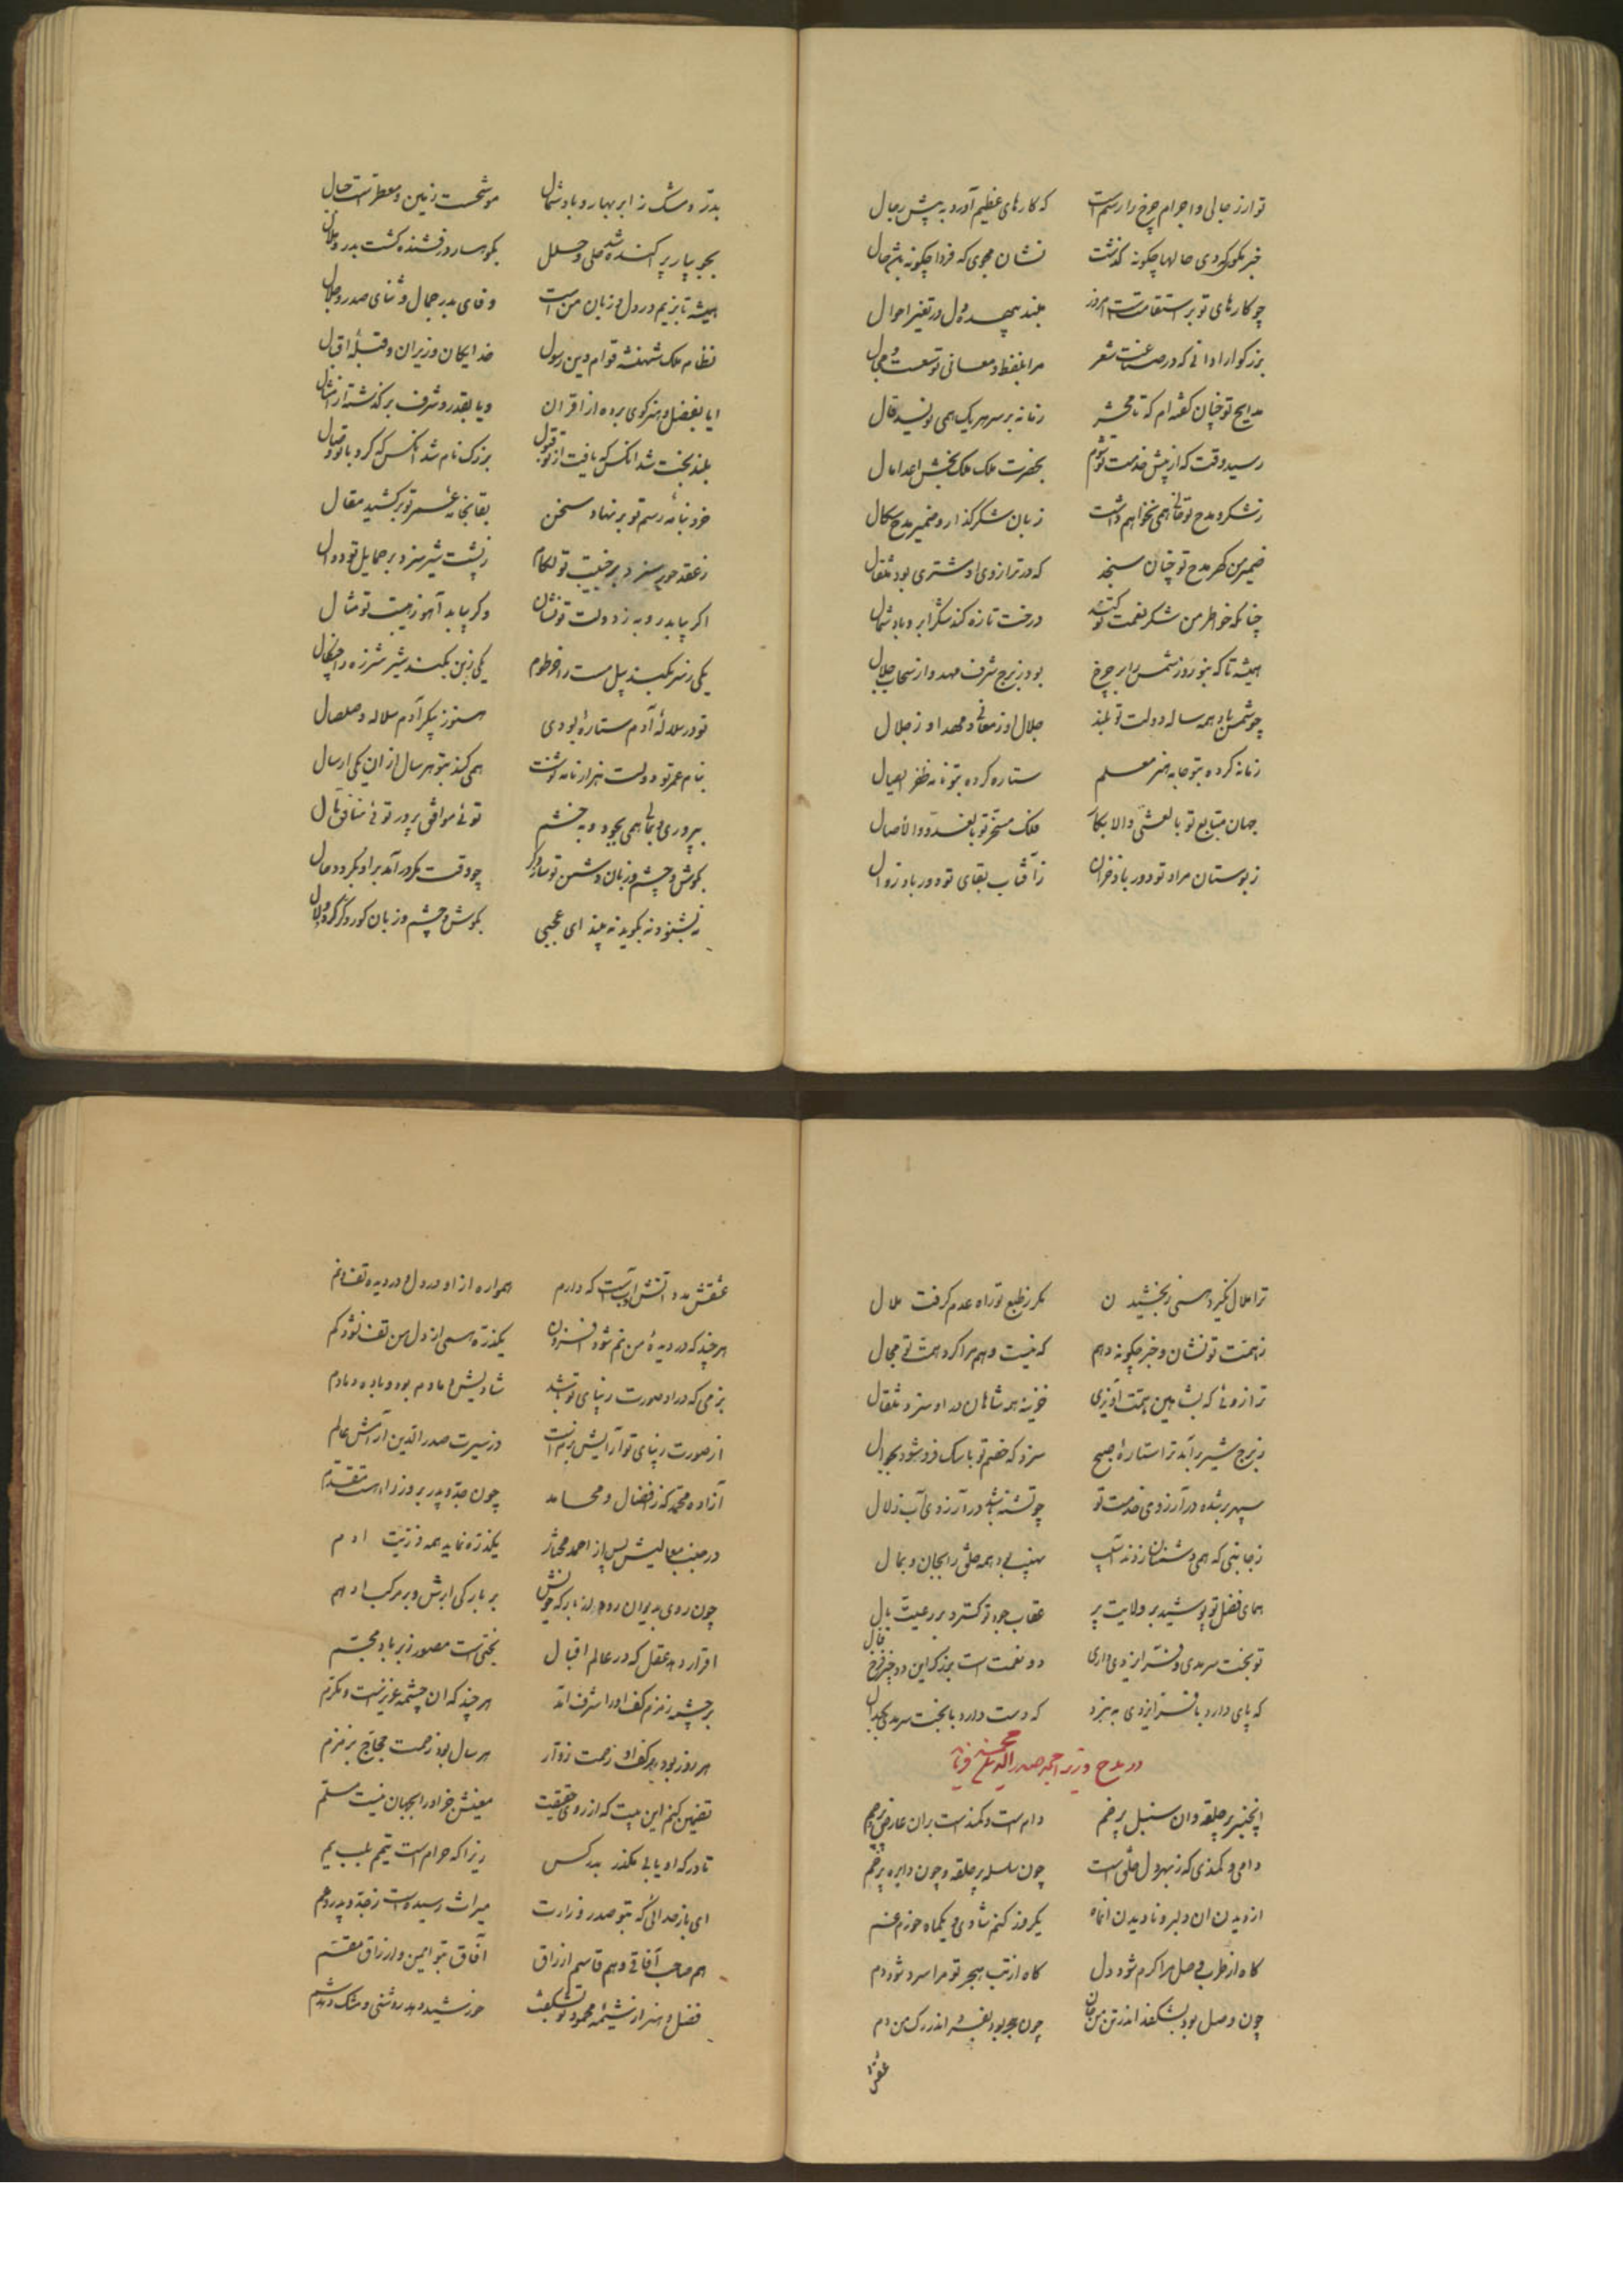 تو ار رجالی و اجرام چرخ را رسم است که کارهای عظیم آورد به پیش رجال
خبر مگوی که دی حالها چگونه گذشت نشان مجوی که فردا چگونه باشد حال
چو کارهای تو بر استقامتست امروز مبند بیهده دل در تغیر احوال
بزرگوارا دانی که در صناعت شعر مرا بلفظ و معانی توسعست و مجال
مدایح تو چنان گفته‌ام که تا محشر زمانه بر سر هر یک همی نویسد قال
رسید وقت که از پیش خدمت تو شوم بحضرت ملک ملک بخش اعدا مال
ز شکر و مدح تو خالی همی نخواهم داشت زبان شکر گذار و ضمیر مدح سگال
ضمیر من گهر مدح تو چنان سنجد که در ترازوی او مشتری بود مثقال
چنانکه خاطر من شکر نعمت تو کند درخت تازه کند شکر ابر و باد شمال
همیشه تا که بنوروز شمس را بر چرخ بود ز برج شرف مهد و از سحاب جلال
چو شمس باد همه ساله دولت تو بلند جلال او ز معانی و مهد او ز جلال
زمانه کرده بتو جامه هنر معلم ستاره کرده بتو نامه ظفر
جهان متابع تو بالعشی والابکار فلک مسخر تو بالغدو والاصال
ز بوستان مراد تو دور باد خزان ز آفتاب بقای تو دور باد زوال
بدر و مشک ز ابر بهار و باد شمال موشحست زمین و معطرست جبال
بجویبار پراکنده شد حلی و حلل بکوهسار درفشنده گشت بدر و هلال
همیشه تا بزیم در دل و زبان منست وفای بدر جمال و ثنای صدر جلال
نظام ملک شهنشه قوام دین رسول خدایگان وزیران و قبله اقبال
ایا بفضل و هنر گوی برده از اقران و یا بقدر و شرف برگذشته از امثال
بلند بخت شد آنکس که یافت از تو قبول بزرگ نام شد آنکس که کرد با تو وصال
خرد بنامه رسم تو بر نهاد سخن بقا بخانه عمر تو بر کشید مقال
ز عقد حور سزد بر جنیبت تو لگام ز پشت شیر سزد بر حمایل تو دوال
اگر بیابد روبه ز دولت تو نشان وگر بیابد آهو ز هیبت تو مثال
یکی ز سر بکند پیل مست را خرطوم یکی ز بن بکند شیر شرزه را چنگال
تو در سلاله آدم ستاره بودی هنوز پیکر آدم سلاله و صلصال
بنام عمر تو دولت هزار نامه نوشت همی کند بتو هر سال از آن یکی ارسال
بپروری و بمالی همی بجود و به خشم توئی موافق پرور توئی منافق مال
بگوش و چشم و زبان دشمن تو چو وقت مکر در آید بر او بگردد حال
نه بشنود نه بگوید نه بیند ای عجبی بگوش و چشم و زبان کور و کر گردد و لال
ترا ملال نگیرد همی ز بخشیدن مگر ز طبع تو راه عدم گرفت ملال
ز همت تو نشان و خبر چگونه دهم که نیست وهم مرا گرد همت تو مجال
ترازوئی که بشاهین همت آویزی خزینه همه شاهان در او سزد مثقال
ز برج شیر برآید ترا ستاره صبح سزد که خصم تو با سگ فرو شود بجوال
سپهر بر شده در آرزوی خدمت تو چو تشنه باشد در آرزوی آب زلال
ز جانبی که همی دشمنان زدند آسیب نهیب بد همه خلق را بجان و بمال
همای فضل تو پوشید بر ولایت پر عقاب جود تو گسترد بر رعیت بال
تو بخت سرمدی و فر ایزدی داری دو نعمت است بزرگ این دو چیز فرخ فال
که پای دارد با فر ایزدی به نبرد که دست دارد با بخت سرمدی بجدال
در مدح وزیر صدرالدین محمد
آن جنبر پر حلقه و آن سنبل پر خم دامست و کمندست بر آن عارض خرم
دامی و کمندی که ز بهر دل خلق است چون سلسله پر حلقه و چون دایره پر خم
از دیدن آن دلبر و نادیدن آن ماه یکروز کنم شادی و یکماه خورم غم
گاه از طرب وصل مرا گرم شود دل گاه از تب هجر تو مرا سرد شود دم
چون وصل بود بشکفد اندر تن من جان چون هجر بود بفسرد اندر رگ من دم
عشقش
عشقش مدد آتش و آبست که دارم همواره از او در دل و در دیده تف و نم
هرچند که در دیده من نم شود افزون یکذره همی از دل من تف نشود کم
بزمی که در او صورت زیبای تو باشد شادیش دمادم بود و باده دمادم
از صورت زیبای تو آرایش بزمست وز سیرت صدرالدین آرامش عالم
آزاده محمد که ز افضال و محامد چون جد و پدر بر وزراء هست مقدم
در جنب معالیش پس از احمد مختار یکذره نماید همه ذریت آدم
چون روی بدیوان بر بارگی ابرش و بر مرکب ادهم
اقرار دهد عقل که در عالم اقبال بختیست مصور زبر باد مجسم
بر چشمه زمزم کف او را شرف آمد هرچند که آن چشمه عزیزست و مکرم
هر روز بود بر کف او زحمت زوار هر سال بود زحمت حجاج بزمزم
تضمین کنم این بیت که از روی حقیقت معنیش جز او را بجهان نیست مسلم
تا درگه او یابی مگذر بدر کس زیرا که حرام است تیمم بلب یم
ای بار خدائی که بتو صدر وزارت میراث رسیدست ز جد و پدر و عم
هم صاحب آفاقی و هم قاسم ارزاق آفاق بتو ایمن و ارزاق مقسم
فضل و هنر از شیمه محمود تو بشکفت خورشید دهد روشنی و مشک دهد شم